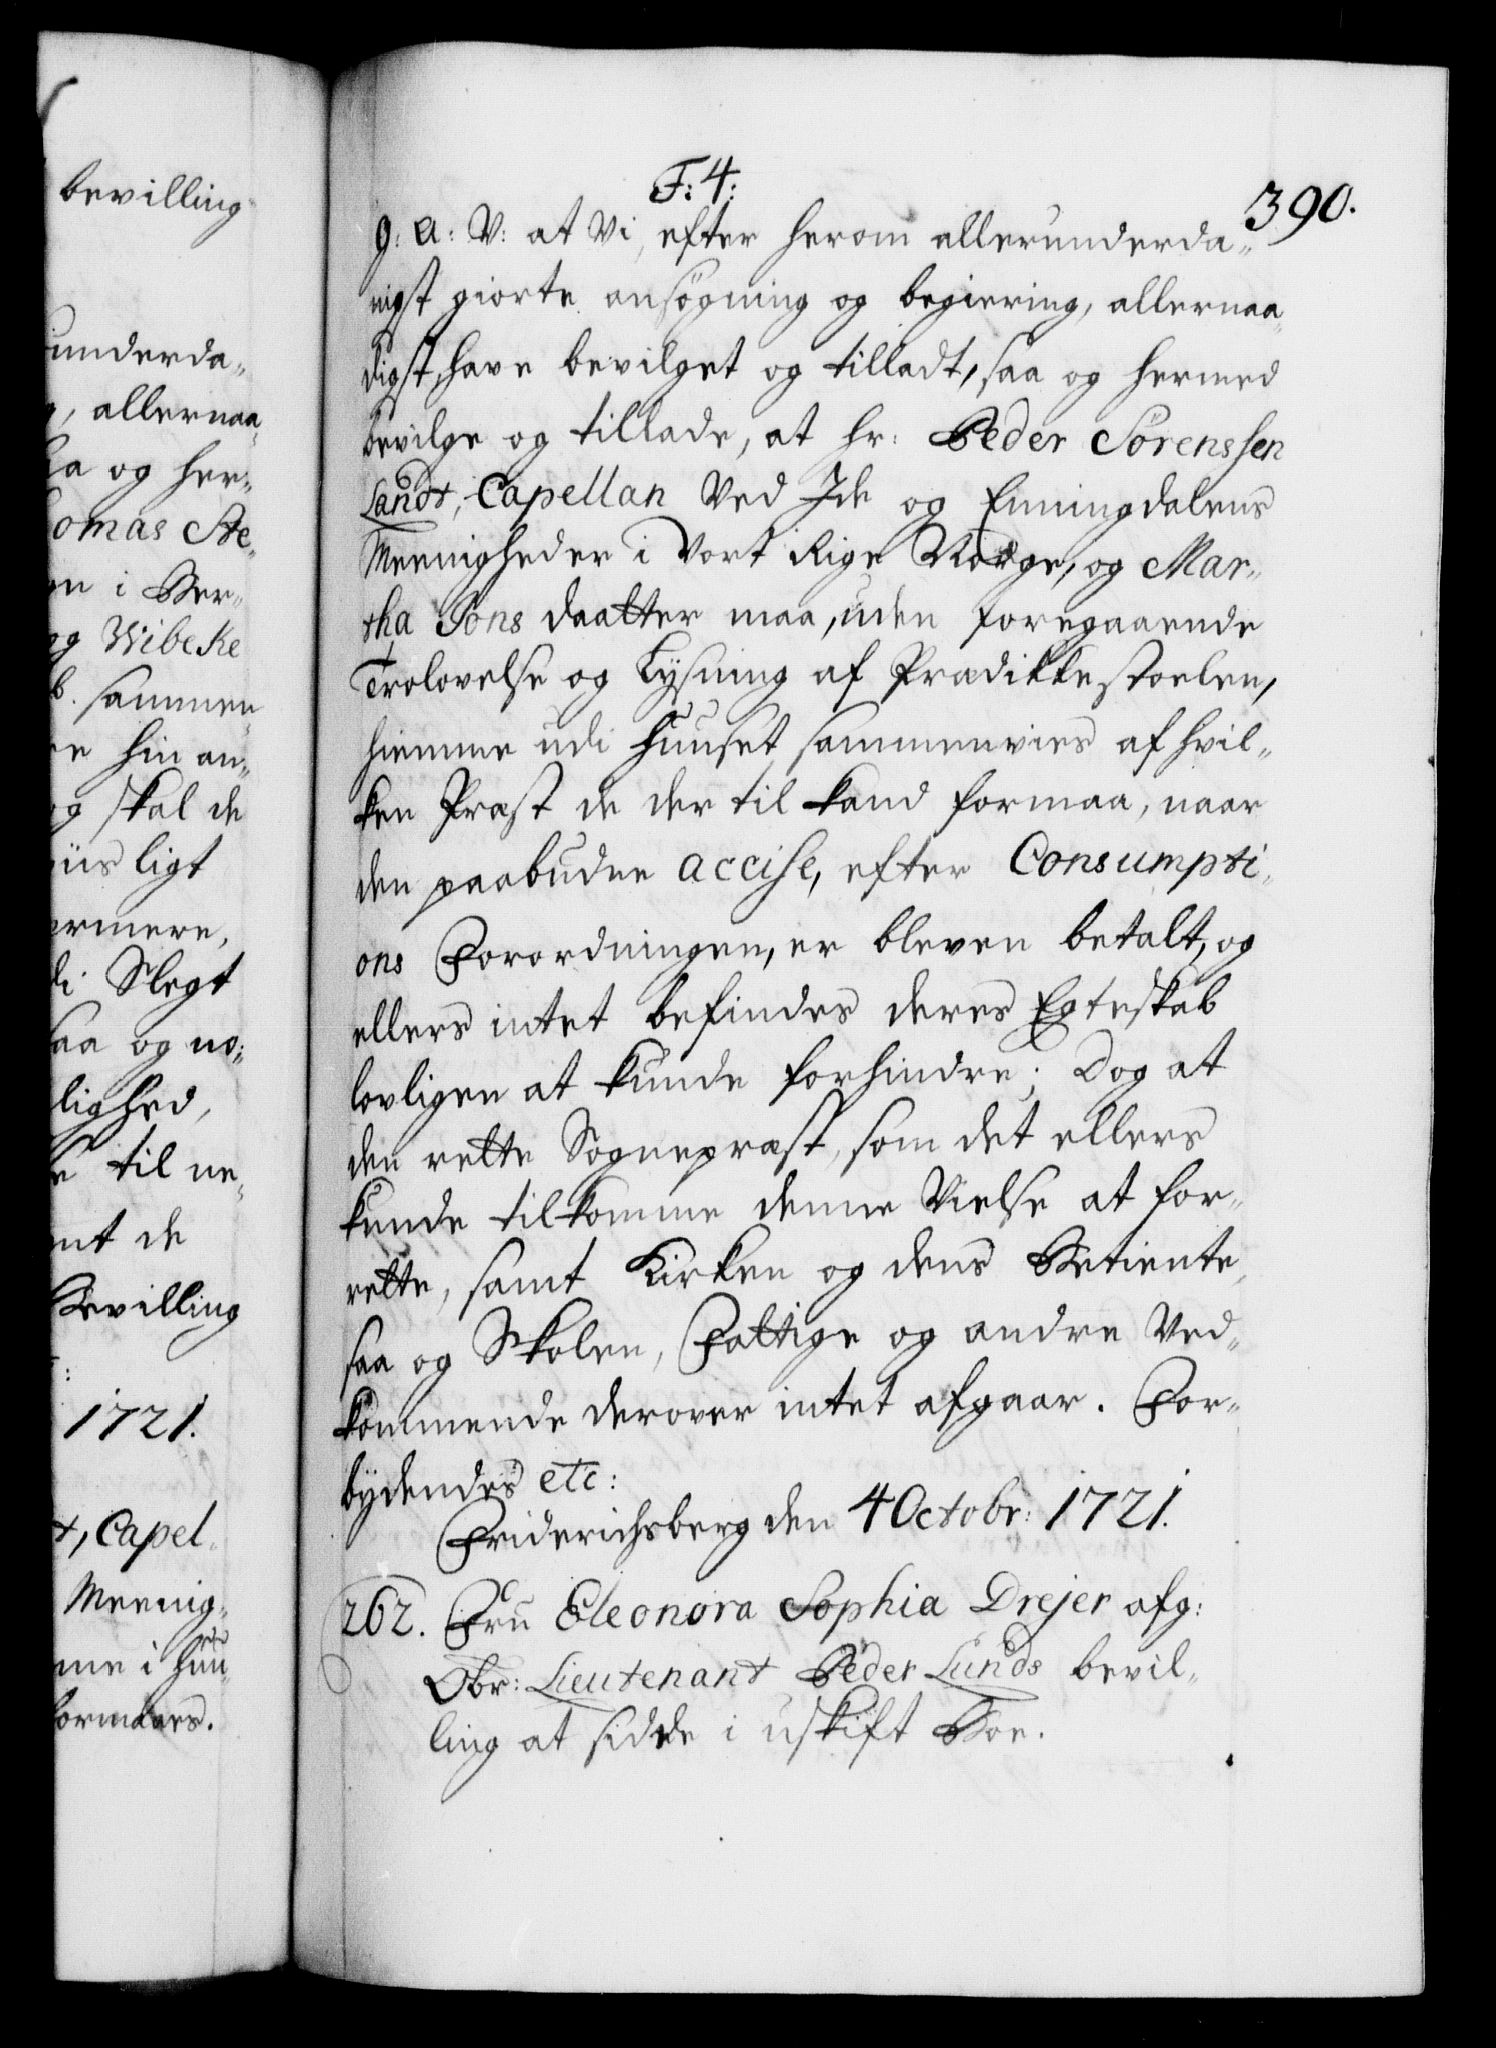 bevilling
underda-
, allernaa-
saa og her-
homas Ste-
i Ber-
og Wibeke
sammen
hin an-
og skal de
ligt
ermere,
di Slegt
saa og no-
lighed,
til ne-
samt de
Bevilling
1721.
t, Capel-
Meenig-
me i Huu-
formaaes.
F: 4:
390.
G: A: V: at Vi, efter herom allerunderda-
nigst giorte ansøgning og begiering, allernaa-
digst have bevilget og tilladt, saa og hermed
bevilge og tillade, at Hr: Peder Sørenssen
Landt, Capellan Ved Ide og Enningdalens
Meenigheder i Vort Rige Norge, og Mar-
tha Jons daatter maa, uden foregaaende
Trolovelse og Lysning af Prædikkestoelen,
hiemme udi Huuset sammenvies af hvil-
ken Præst de der til kand formaa, naar
den paabudne accise, efter Consumpti-
ons Forordningen, er bleven betalt, og
ellers intet befindes deres Egteskab
lovligen at kunde forhindre; Dog at
den rette Sognepræst, som det ellers
kunde tilkomme denne Vielse at for-
rette, samt Kirken og dens Betiente,
saa og Skolen, Fattige og andre Ved-
kommende derover intet afgaar. For-
bydendes etc:
Friderichsberg den 4 Octobr: 1721.
262. Fru Eleonora Sophia Drejer afg:
Obr: Lieutenant Peder Lunds bevil-
ling at sidde i uskift Boe.